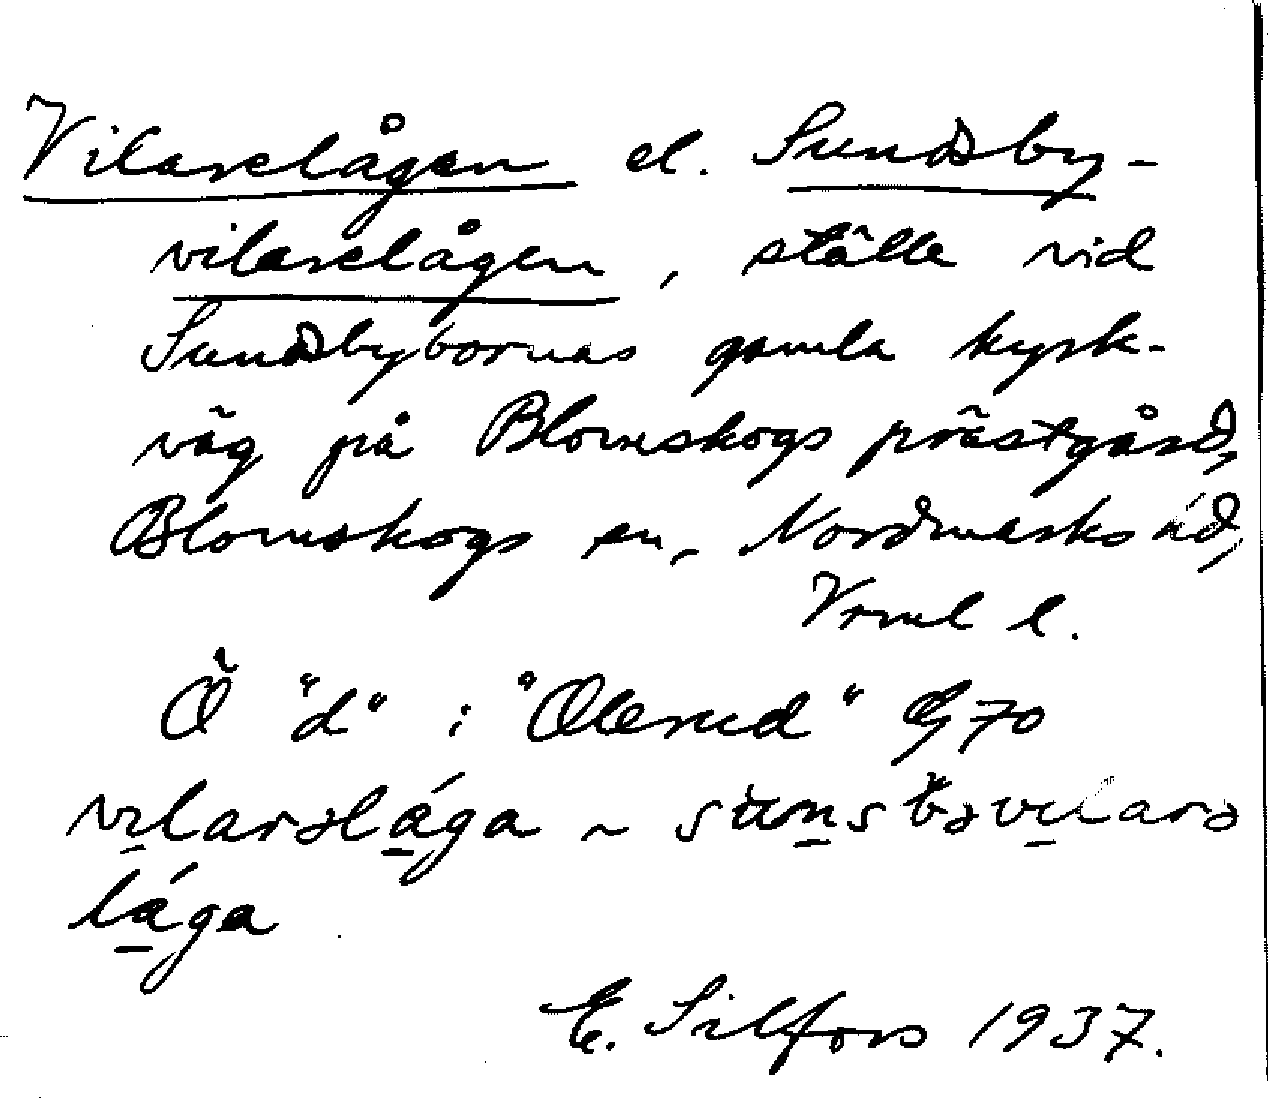 Vilarelågen el. Sundsby-
vilarelågen, ställe vid
Sundsbybornas gamla kyrk-
väg på Blomskogs prästgård,
Blomskogs sn, Nordmarks hd,
Vrml l.
Ö "d" i "Olerud" Eg 70
vilarəlága ~ sünsbəvilarə
lága
E. Silfors 1937.